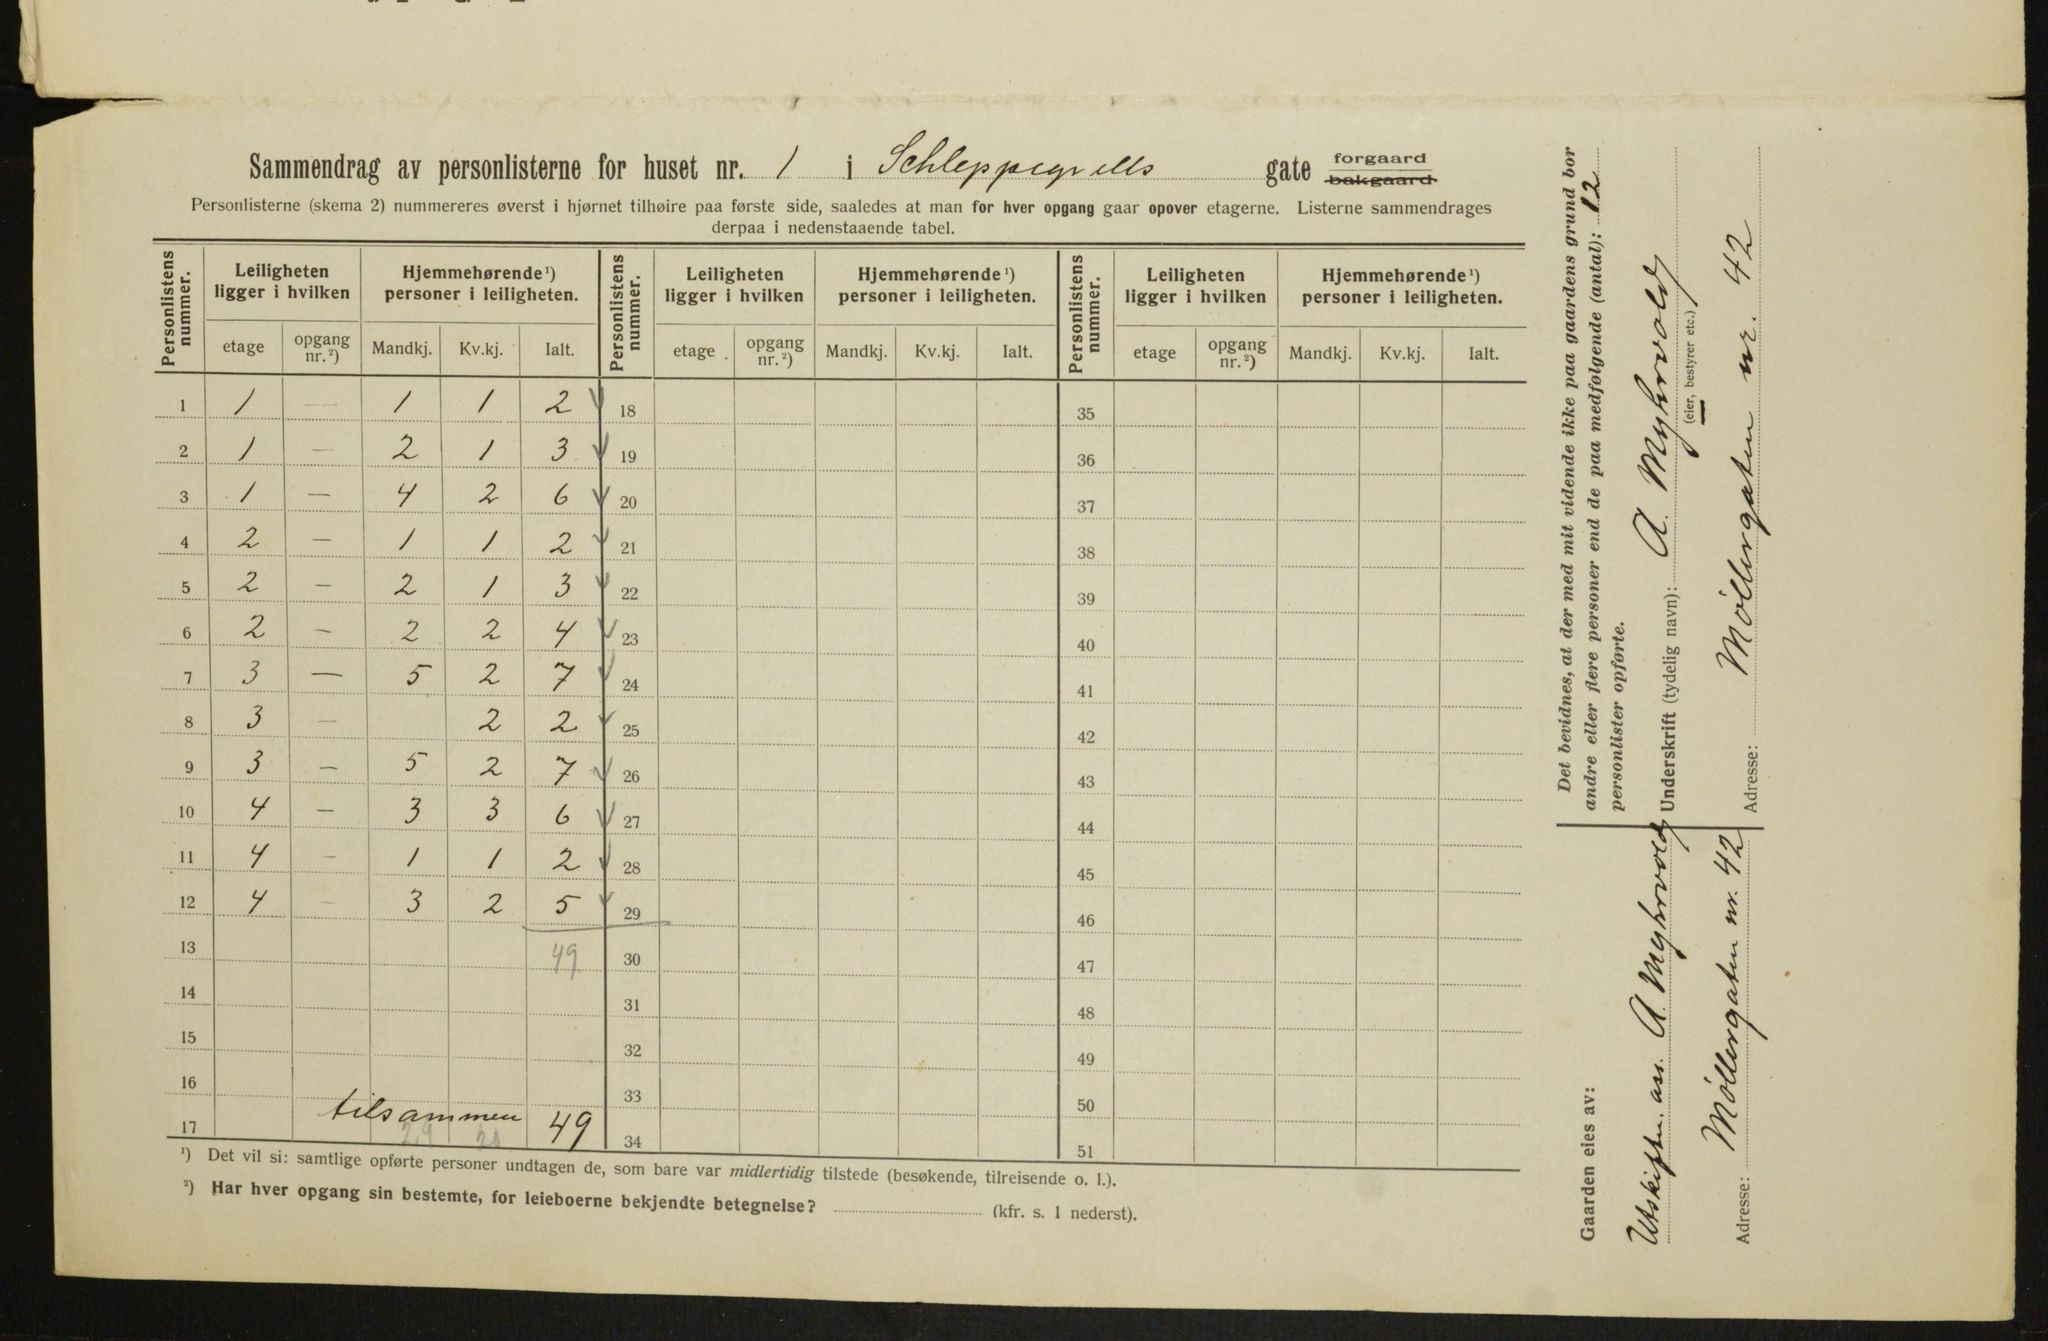 Sammendrag av personlisterne for huset nr. 1 i Schleppegrells gate forgaard bakgaard
Personlisterne (skema 2) nummereres øverst i hjørnet tilhøire paa første side, saaledes at man for hver opgang gaar opover etagerne. Listerne sammendrages
derpaa i nedenstaaende tabel.
Personlistens nummer. Leiligheten ligger i hvilken Hjemmehørende¹) personer i leiligheten. Personlistens nummer. Leiligheten ligger i hvilken Hjemmehørende¹) personer i leiligheten. Personlistens nummer. Leiligheten ligger i hvilken Hjemmehørende¹) personer i leiligheten.
etage opgang nr.²) Mandkj. Kv.kj. Ialt. etage opgang nr.²) Mandkj. Kv.kj. Ialt. etage opgang nr.²) Mandkj. Kv.kj. Ialt.
1 1 — 1 1 2 18 35
2 1 — 2 1 3 19 36
3 1 — 4 2 6 20 37
4 2 — 1 1 2 21 38
5 2 — 2 1 3 22 39
6 2 — 2 2 4 23 40
7 3 — 5 2 7 24 41
8 3 — 2 2 25 42
9 3 — 5 2 7 26 43
10 4 — 3 3 6 27 44
11 4 — 1 1 2 28 45
12 4 — 3 2 5 29 46
13 49 30 47
14 31 48
15 32 49
16 33 50
17 tilsammen 29 20 49 34 51
¹) Det vil si: samtlige opførte personer undtagen de, som bare var midlertidig tilstede (besøkende, tilreisende o. l.).
²) Har hver opgang sin bestemte, for leieboerne bekjendte betegnelse? (kfr. s. 1 nederst).
Det bevidnes, at der med mit vidende ikke paa gaardens grund bor
andre eller flere personer end de paa medfølgende (antal): 12
personlister opførte.
Underskrift (tydelig navn): A. Myhrvold
(eier, bestyrer etc.)
Adresse: Möllergaten nr. 42
Gaarden eies av:
Utskiftn. ass. A. Myhrvold
Adresse: Möllergaten nr. 42